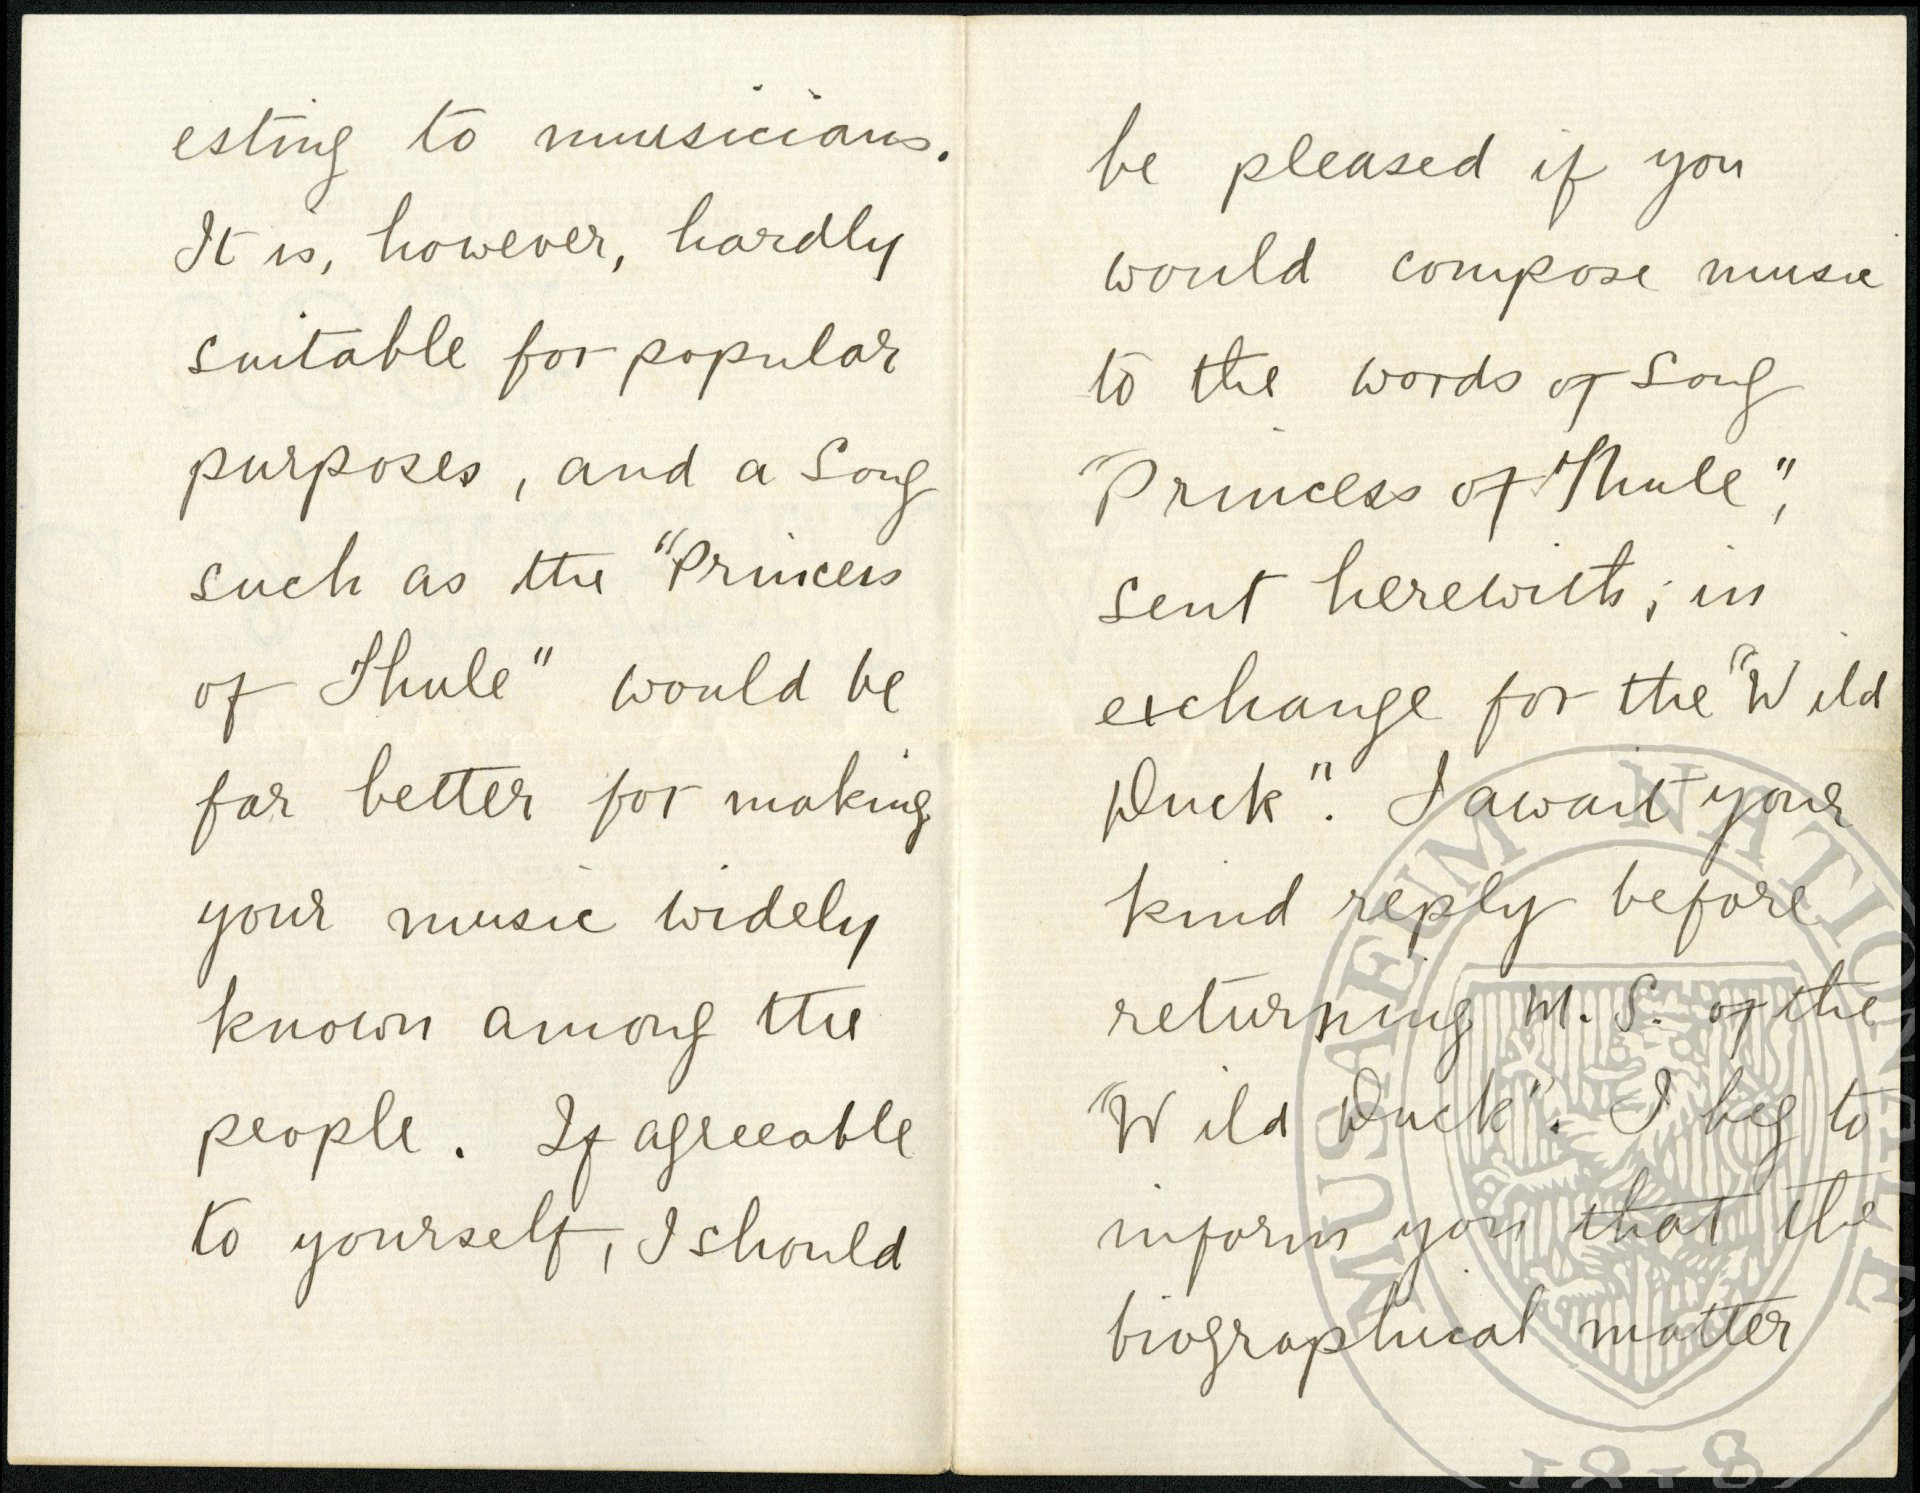 esting to musicians.
It is, however, hardly
suitable for popular
purposes, and a song
such as the "Princess
of Thule" would be
far better for making
your music widely
known among the
people. If agreeable
to yourself, I should
be pleased if you
would compose music
to the words of song
"Princess of Thule",
sent herewith; in
exchange for the "Wild
Duck". I await your
kind reply before
returning M.S. of the
"Wild Duck". I beg to
inform you that the
biographical matter
MUSAEUM NATIONALE
1818